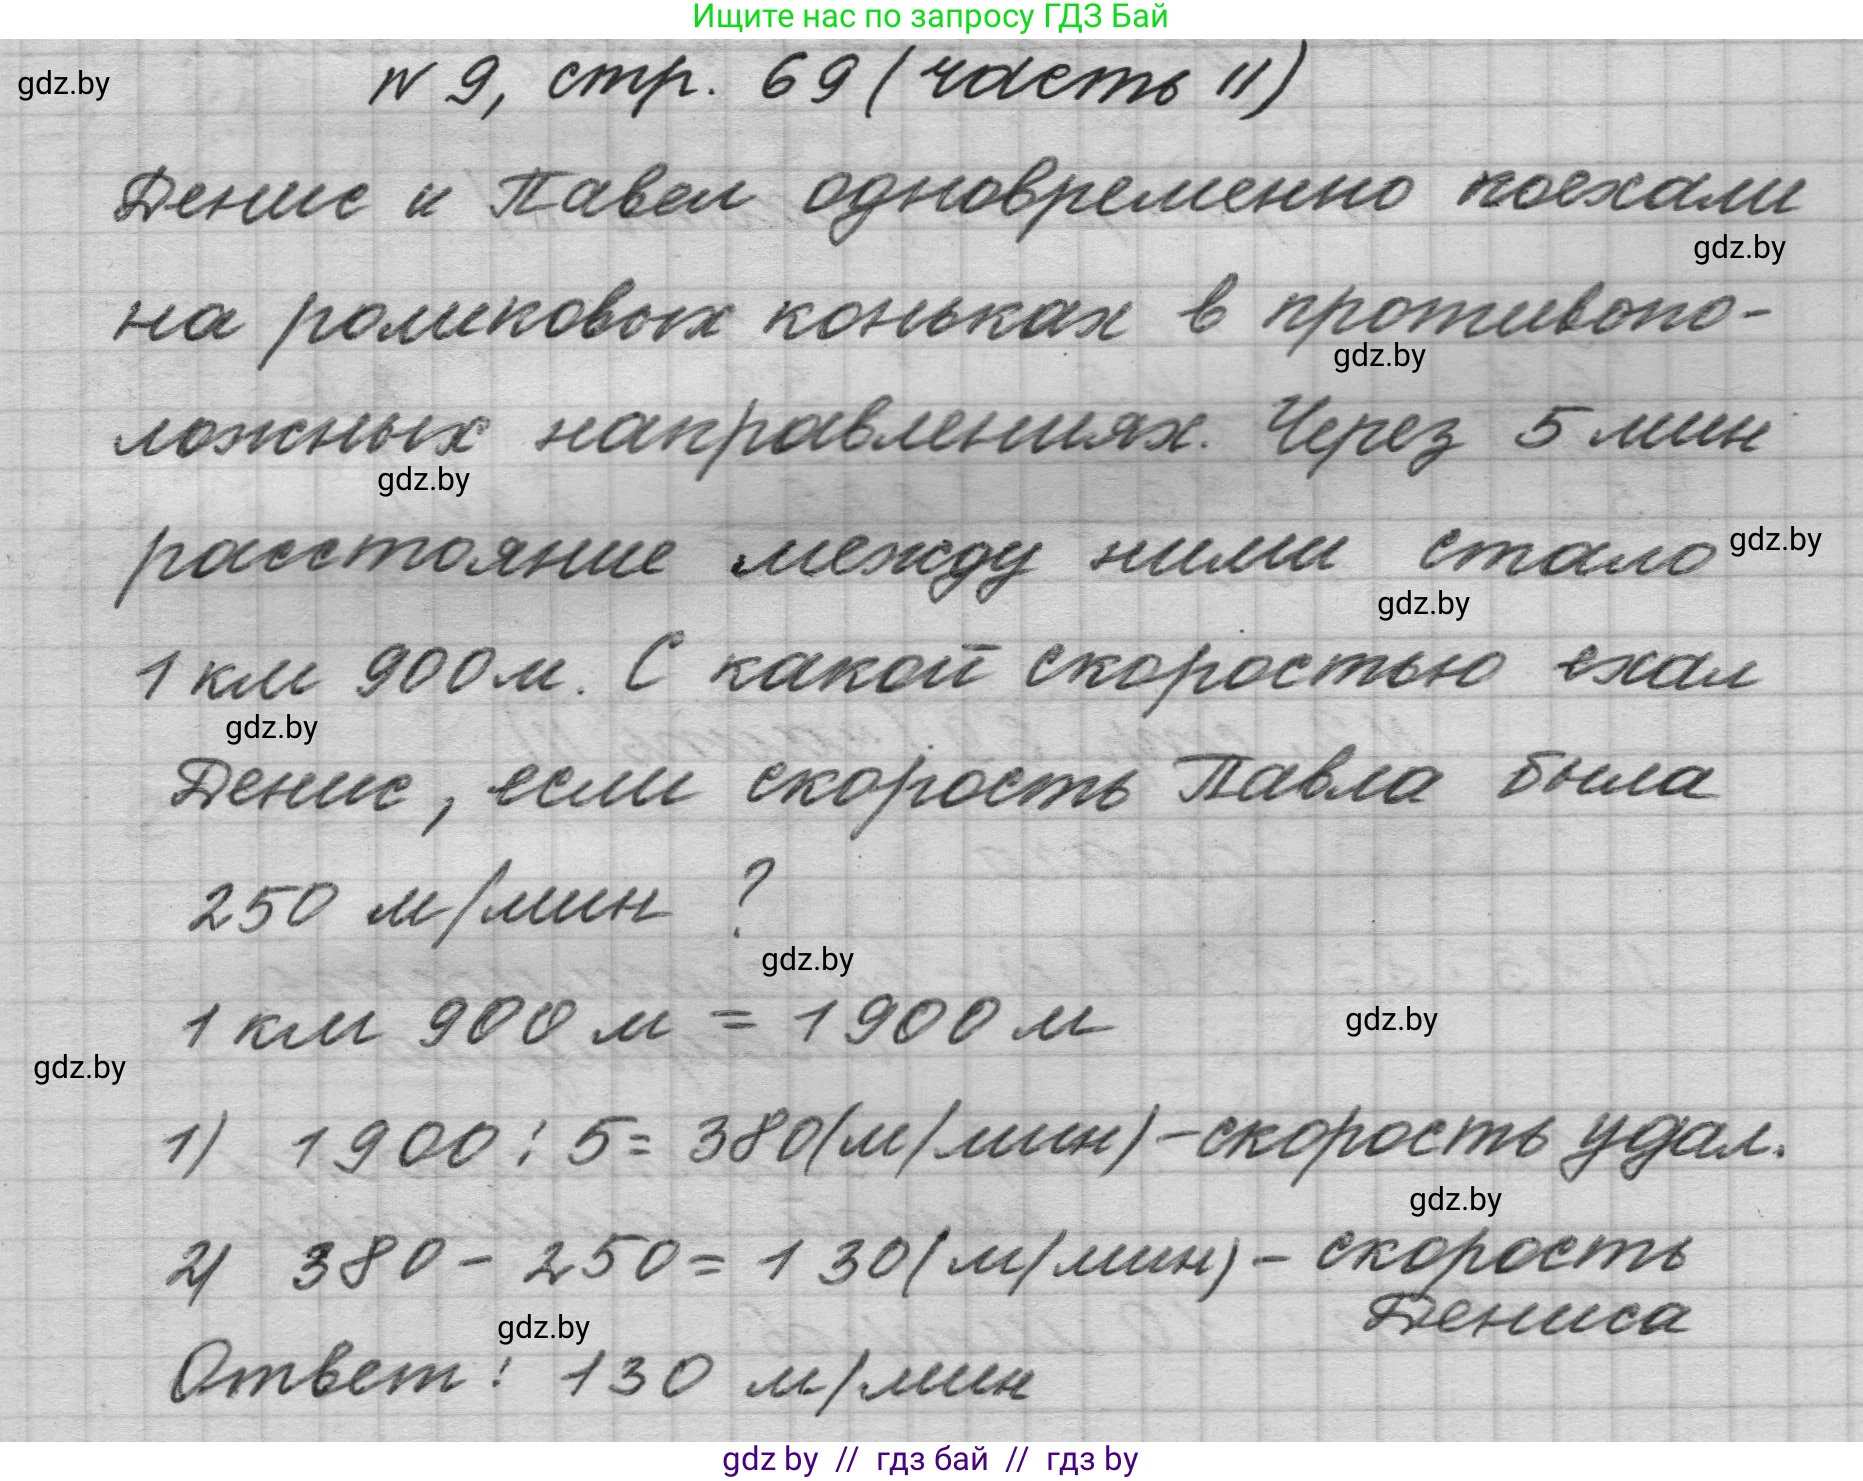 Ищите нас по запросу ГДЗ Бай
gdz.by
N 9, стр. 69 (часть II)
Денис и Павел одновременно поехали
gdz.by
на роликовых коньках в противопо-
gdz.by
ложных направлениях. Через 5 мин
gdz.by
расстояние между ними стало
gdz.by
gdz.by
1 км 900 м. С какой скоростью ехал
gdz.by
Денис, если скорость Павла была
250 м/мин ?
gdz.by
1 км 900 м = 1900 м
gdz.by
gdz.by
1) 1900 : 5 = 380 (м/мин) - скорость удал.
gdz.by
2) 380 - 250 = 130 (м/мин) - скорость
Дениса
gdz.by
Ответ: 130 м/мин
gdz by // гдз бай // гдз by